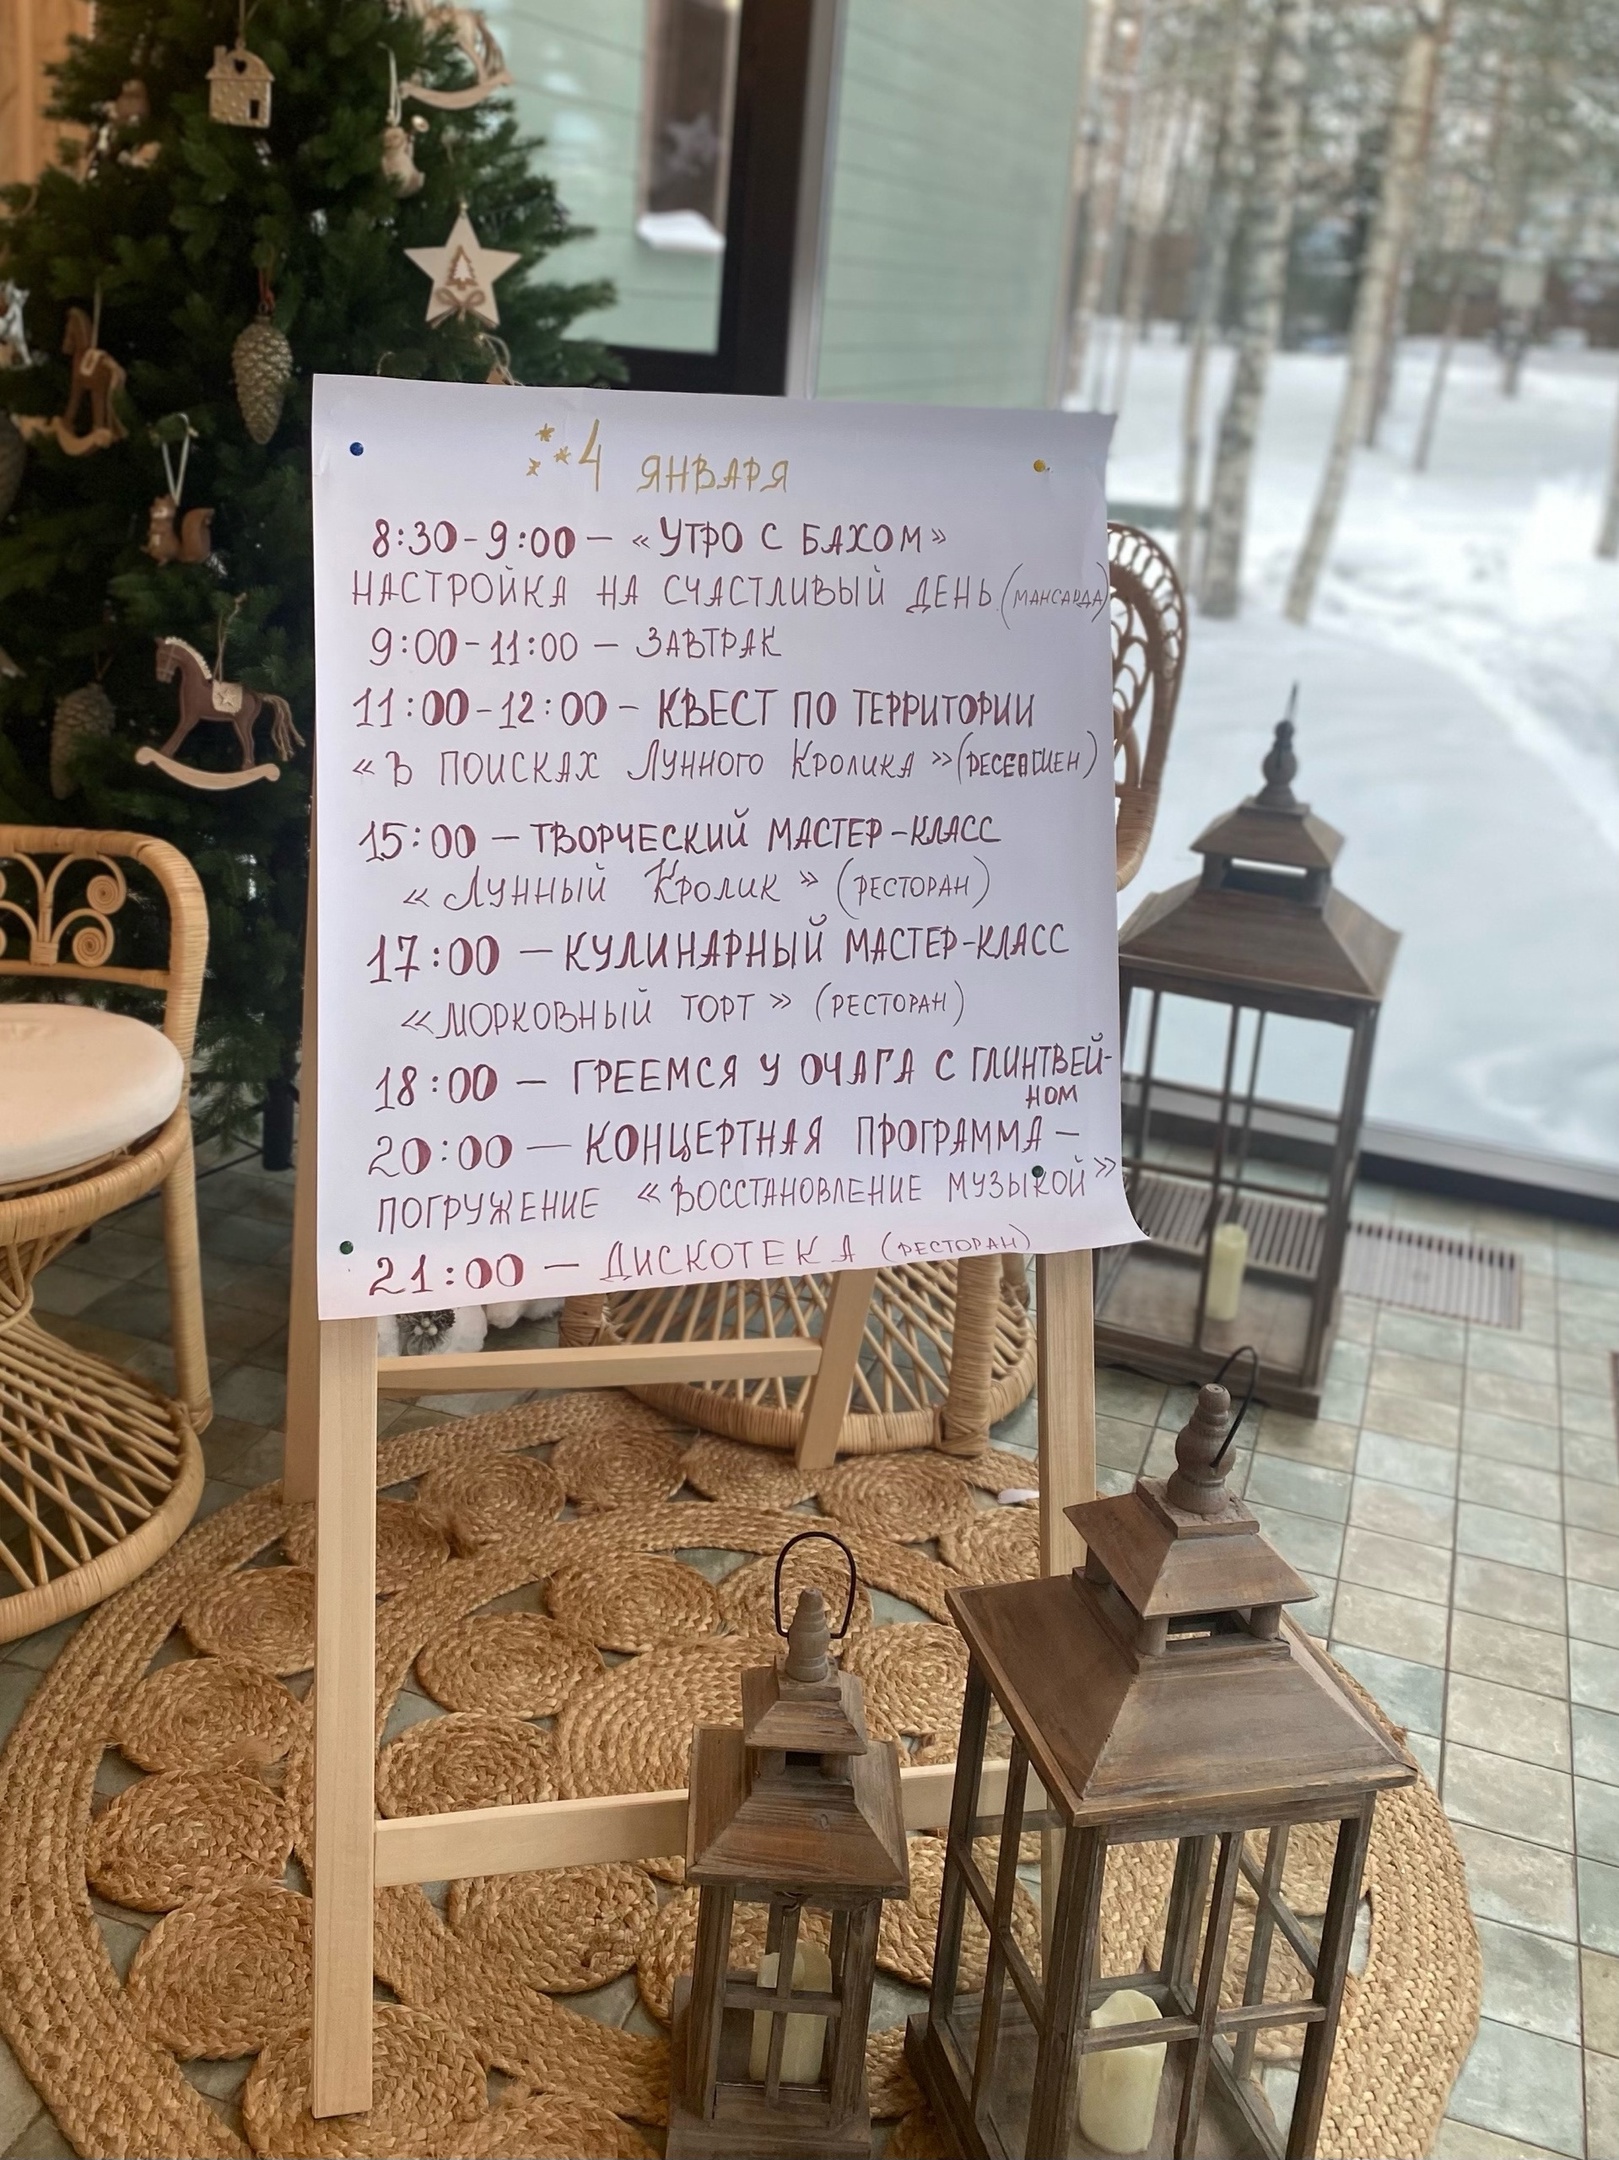 4 ЯНВАРЯ
8:30-9:00 — «УТРО С БАХОМ»
НАСТРОЙКА НА СЧАСТЛИВЫЙ ДЕНЬ (МАНСАРДА)
9:00-11:00 — ЗАВТРАК
11:00-12:00 — КВЕСТ ПО ТЕРРИТОРИИ
«В ПОИСКАХ ЛУННОГО КРОЛИКА» (РЕСЕПШЕН)
15:00 — ТВОРЧЕСКИЙ МАСТЕР-КЛАСС
«ЛУННЫЙ КРОЛИК» (РЕСТОРАН)
17:00 — КУЛИНАРНЫЙ МАСТЕР-КЛАСС
«МОРКОВНЫЙ ТОРТ» (РЕСТОРАН)
18:00 — ГРЕЕМСЯ У ОЧАГА С ГЛИНТВЕЙ-
НОМ
20:00 — КОНЦЕРТНАЯ ПРОГРАММА —
ПОГРУЖЕНИЕ «ВОССТАНОВЛЕНИЕ МУЗЫКОЙ»
21:00 — ДИСКОТЕКА (РЕСТОРАН)